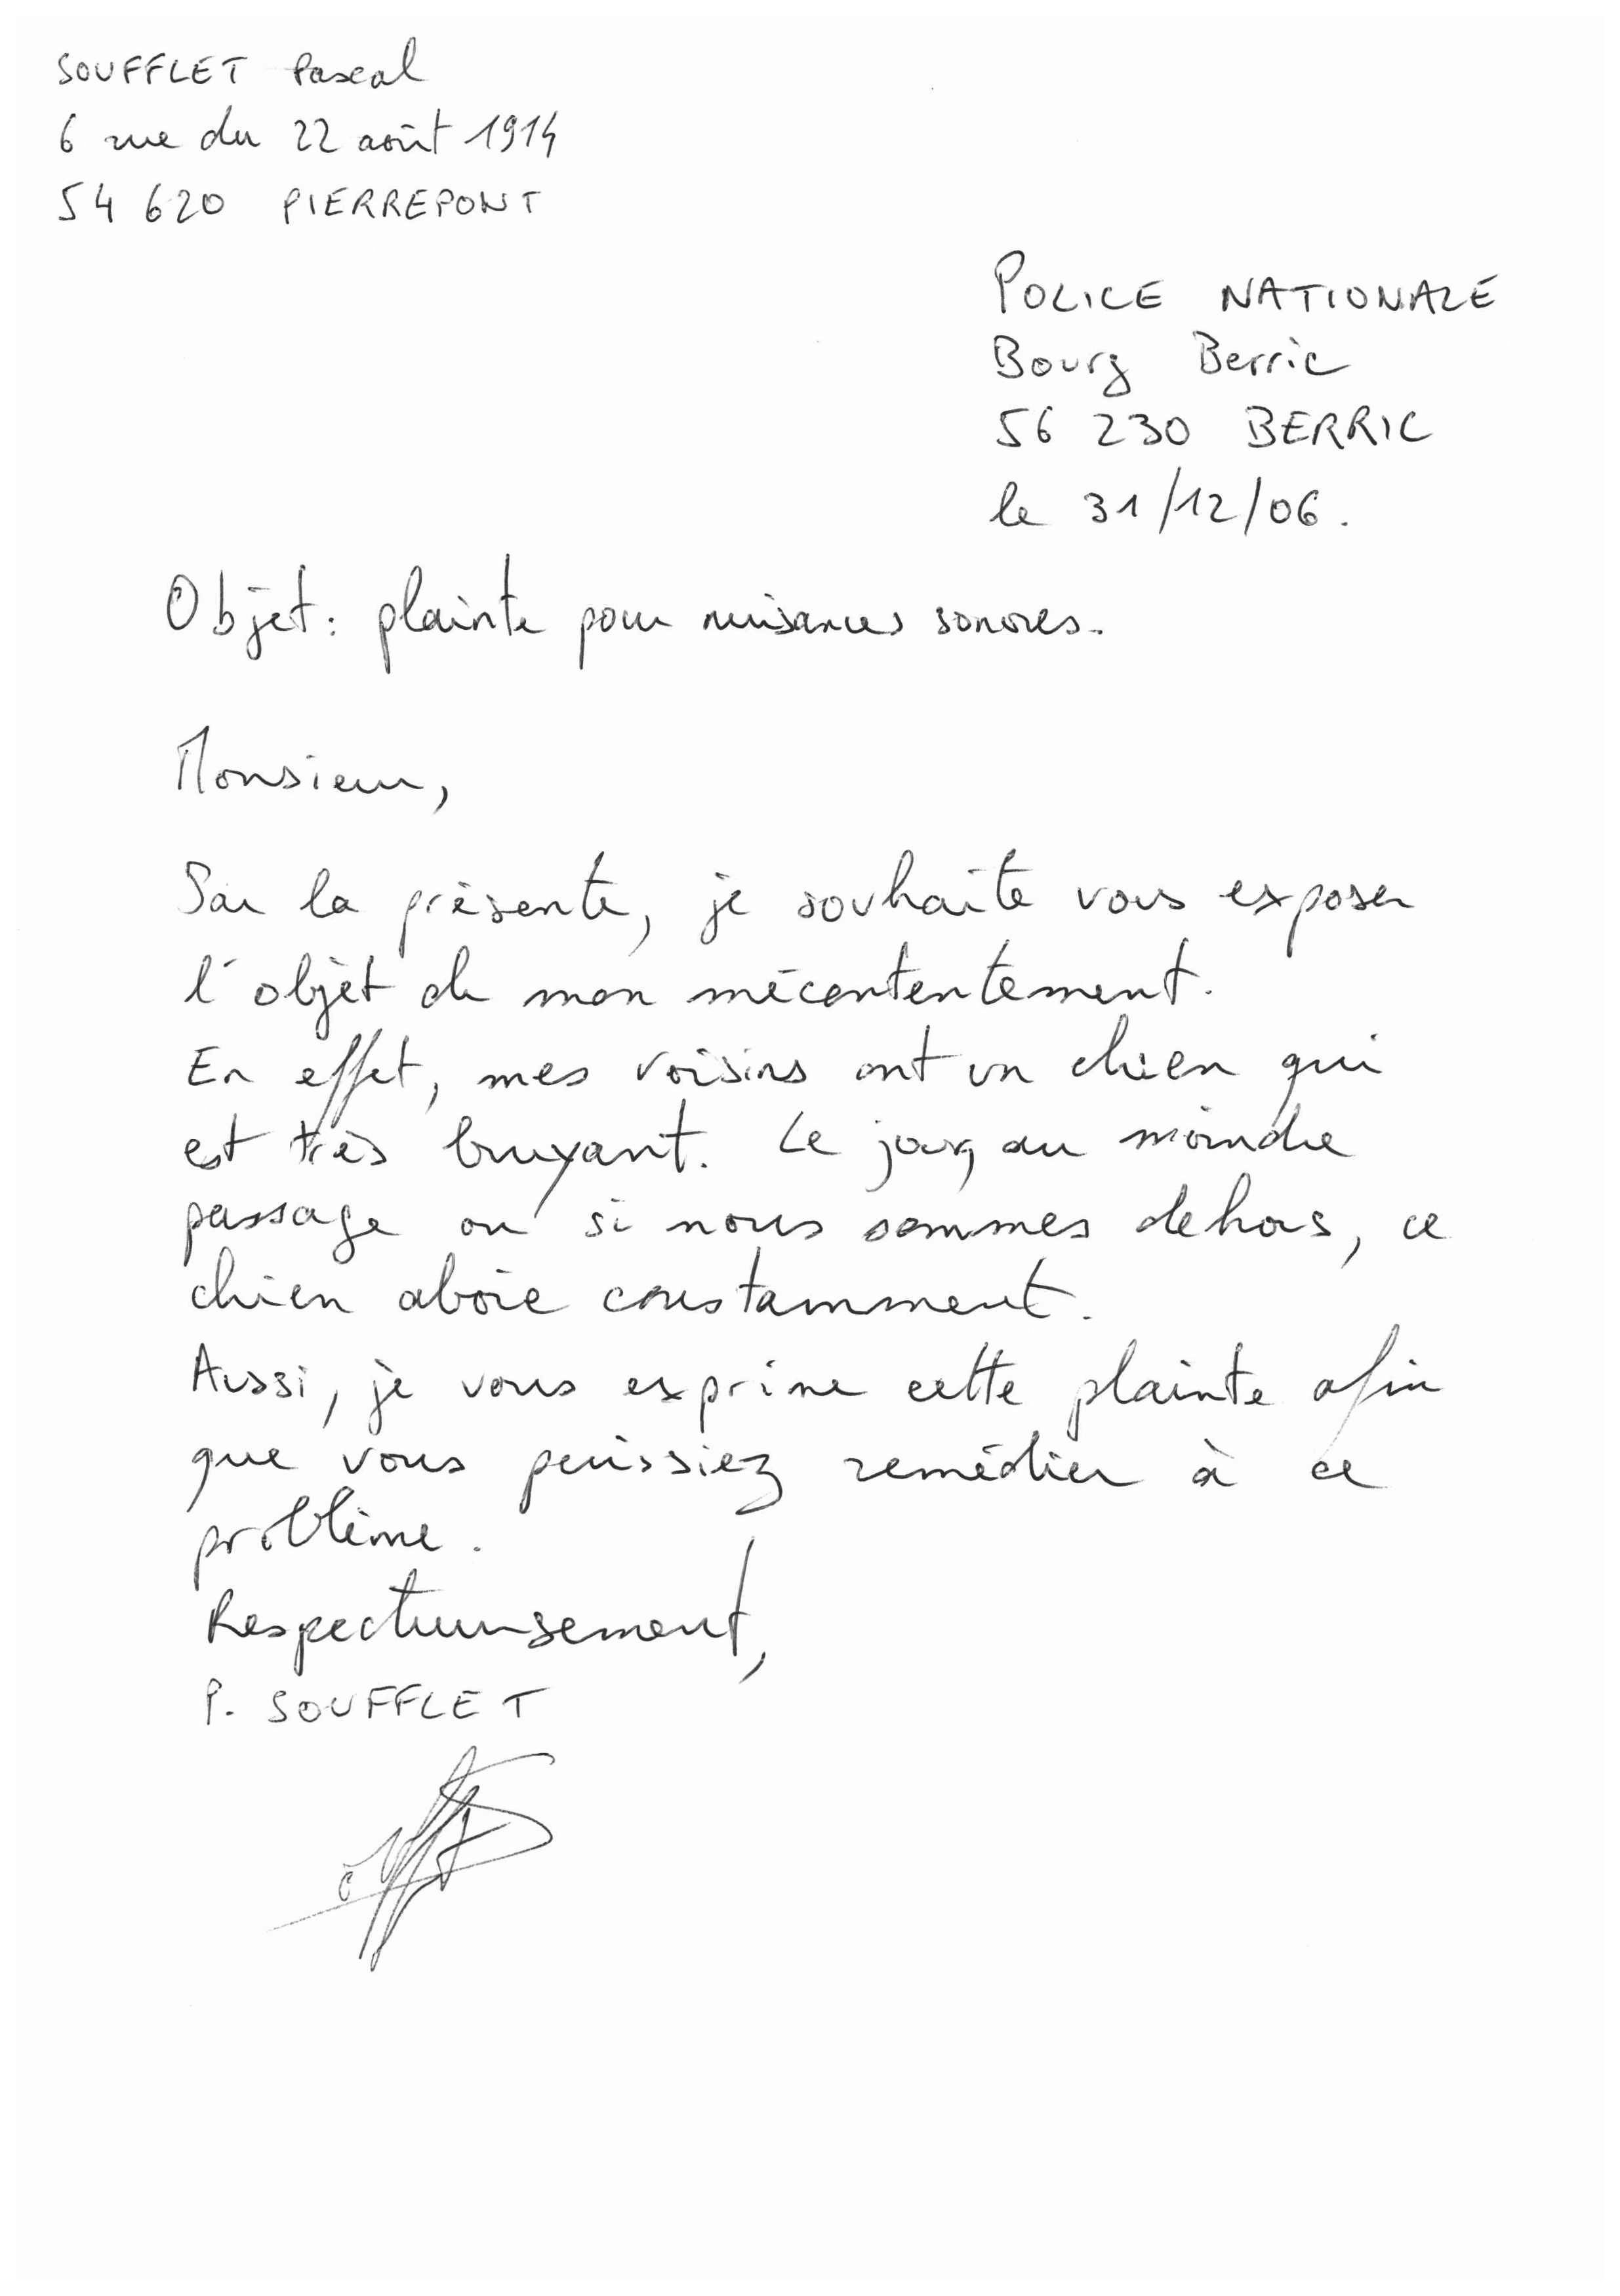 SOUFFLET Pascal
6 rue du 22 août 1914
54 620 PIERREPONT
POLICE NATIONALE
Bourg Berric
56 230 BERRIC
le 31/12/06.
Objet: plainte pour nuisances sonores.
Monsieur,
Par la présente, je souhaite vous exposer
l'objet de mon mécontentement.
En effet, mes voisins ont un chien qui
est très bruyant. Le jour, au moindre
passage ou si nous sommes dehors, ce
chien aboie constamment.
Aussi, je vous exprime cette plainte afin
que vous puissiez remédier à ce
problème.
Respectueusement,
P. SOUFFLET